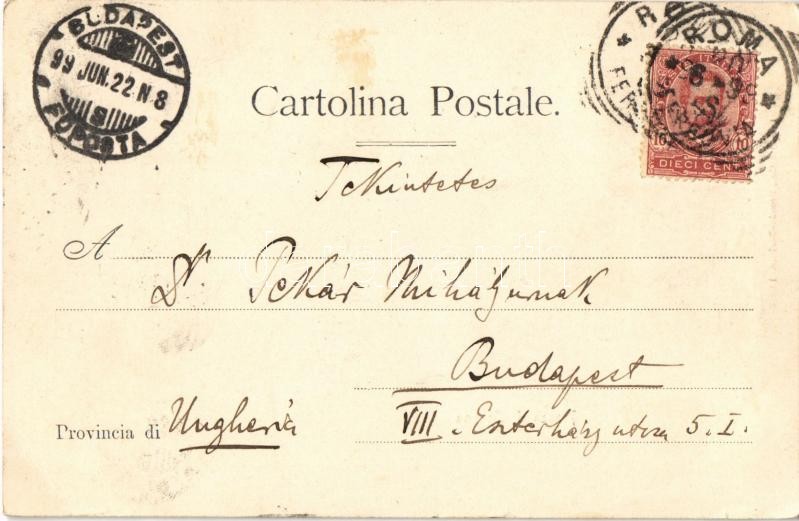 BUDAPEST
99 JUN. 22. N. 8
FŐPOSTA
ROMA
DIECI CENT
Cartolina Postale.
Tekintetes
A Dr. Pekár Mihálynak
Budapest
Provincia di Ungheria VIII. Eszterházy utcza 5. I.